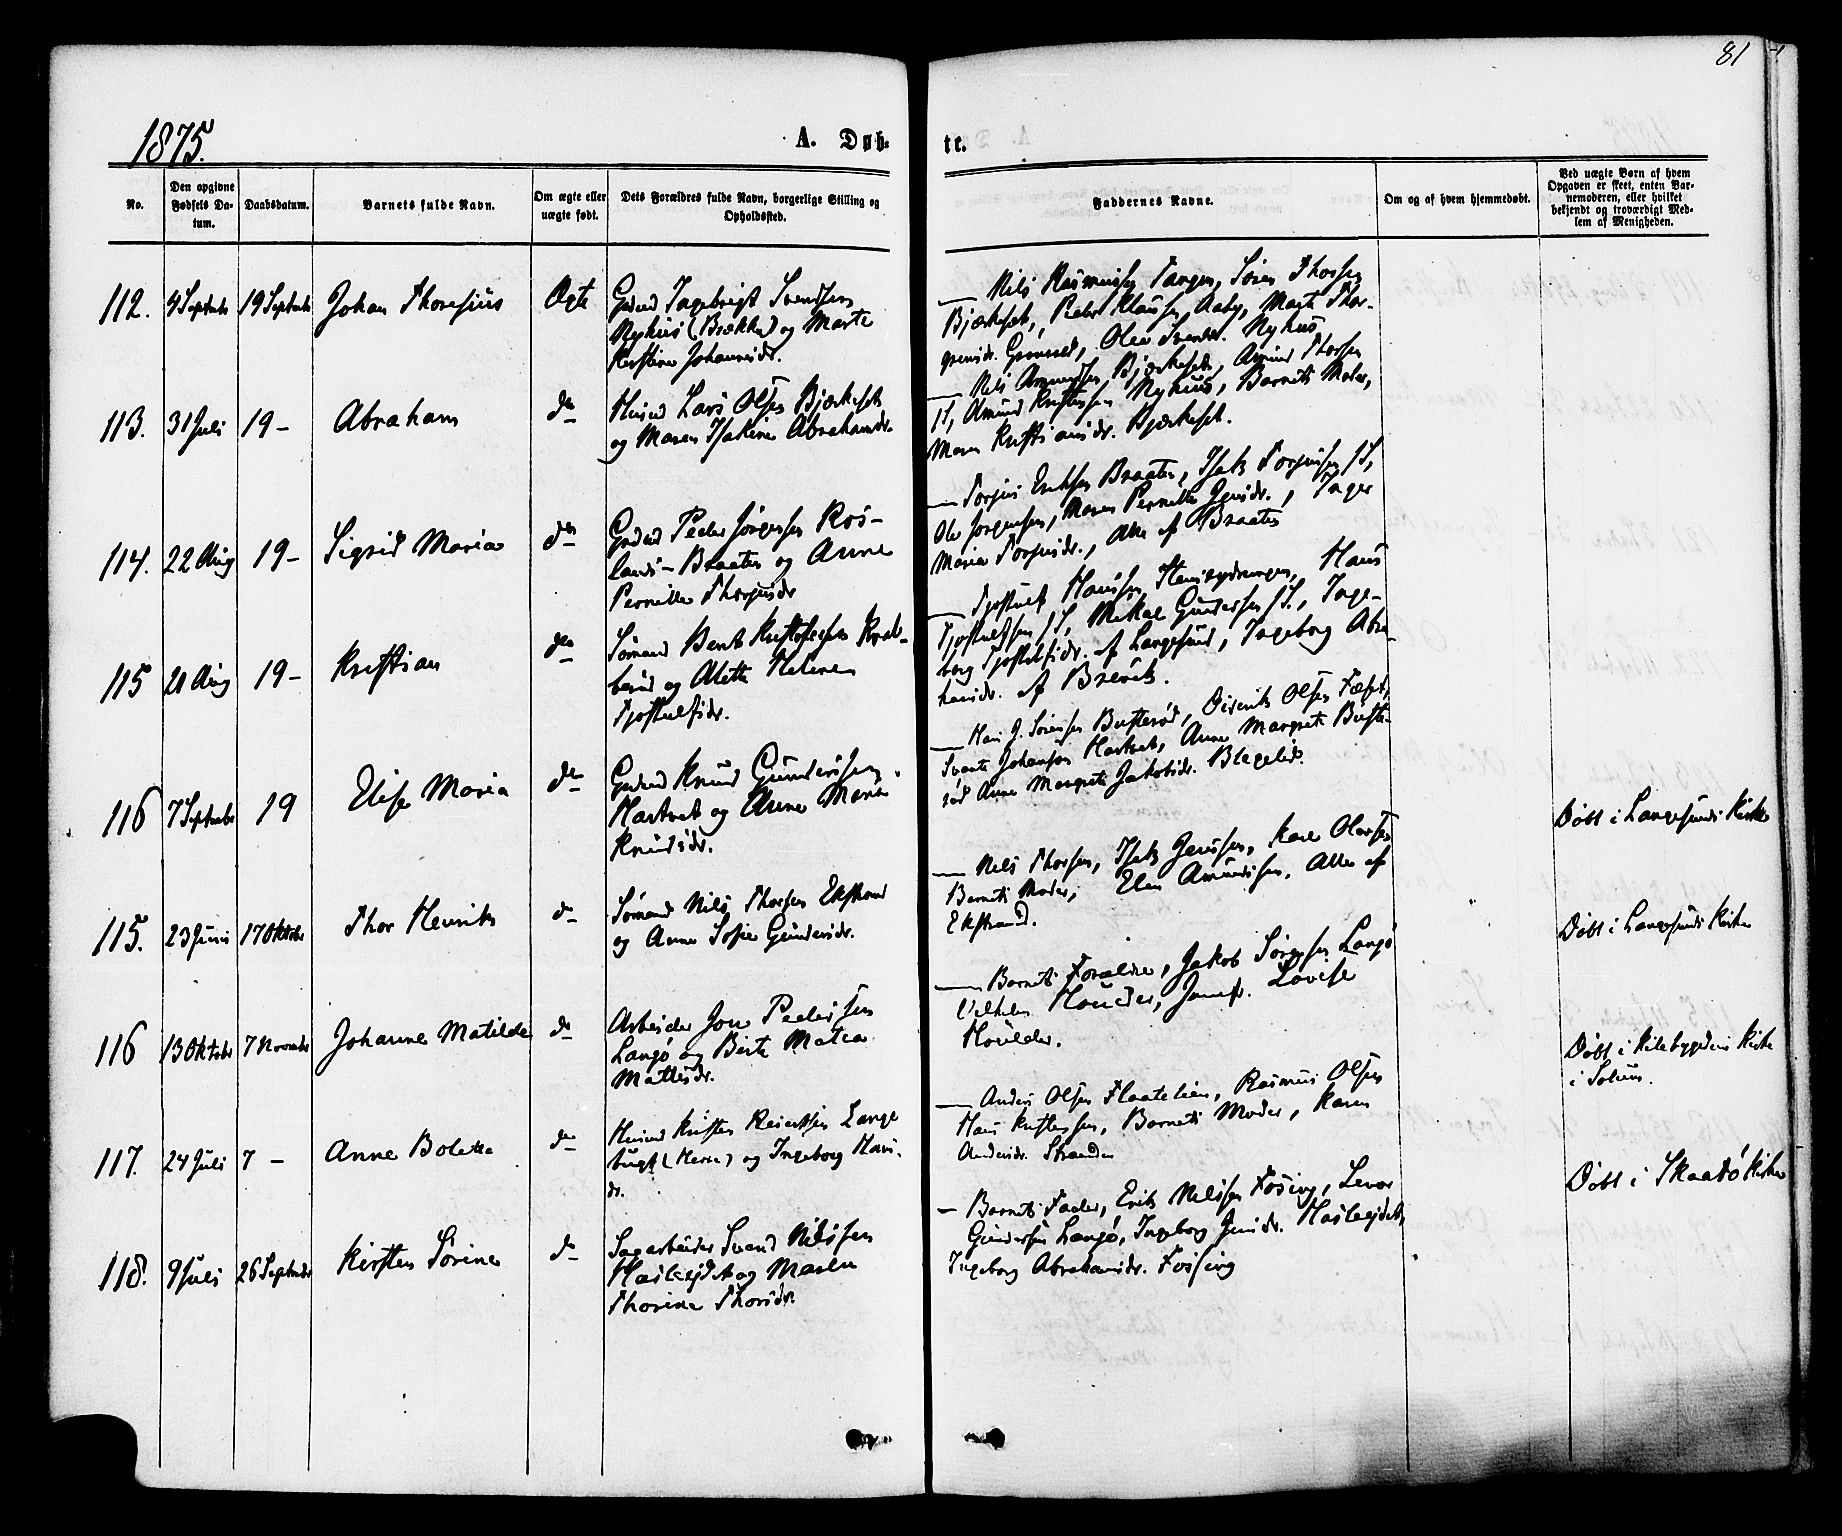 81
1875.
A. Døb-
te.
No.
Den opgivne Fødsels Da-tum.
Daabsdatum.
Barnets fulde Navn.
Om ægte eller uægte født.
Dets Forældres fulde Navn, borgerlige Stilling og Opholdssted.
Faddernes Navne.
Om og af hvem hjemmedøbt.
Ved uægte Børn af hvem Opgaven er skeet, enten Bar-nemoderen, eller hvilket bekjendt og troværdigt Med-lem af Menigheden.
112. 4 Septmbr 19 Septmbr Johan Thoresius Ægte
Gdmd Ingebrigt Svendsen
Nyhus (Brække) og Marte
Kirstine Johannesdr.
Nils Rasmussen Tangen, Sören Thorsen
Bjærkeset, Peder Klausen Aaby, Marte Thor-
Nyhus
113. 31 Juli 19 - Abraham do
Husmd Lars Olsen Bjærkeset
og Maren Isakine Abrahamsdr.
Nils Amundsen Bjærkeset, Amund Thorsen
Nyhus, Barnets Moder,
Maren Kristiansdr. Bjærkeset.
114. 22 Aug 19 - Sigrid Maria do
Gdmd Peder Jörgensen Ros-
lands - Braaten og Anne
Pernille Thorjusdr
Torjus Eriksen Braaten, Isak Torjusen ib,
Ole Jorgensen, Maren Pernille Jensdr., Inger
Maria Torjusdr., Alle af Braaten
115 21 Aug 19 - Kristian do
Sömand Bent Kristofersen
og Alette Helene
Tjostulfsdr.
Tjostulf Hansen, Hans
Tjostulfsen ib, Mikal Gundersen ib., Inge-
borg Tjostulfsdr. af Langesund, Ingeborg Abra-
hamsdr. af Brevik.
116 7 Septmbr 19 Elise Maria do
Gdmd Knud Gundersen
Hartvet og Anne Maria
Knudsdr.
Hans J. Sörensen Busteröd, Olsen
Svente Johanson Hartvet, Anne Margrete Buste-
röd Anne Margrete Jakobsdr. Blegeliv.
Döbt i Langesunds Kirke
115. 23 Juni 17 Oktober Thor Henrik do
Sömand Nils Thorsen Ekstrand
og Anne Sofie Gundersdr.
Nils Thorsen, Isak Jensen, Karen Olavsen
Barnets Moder, Elen Amundsen. Alle af
Ekstrand.
Döbt i Langesunds Kirke
116 13 Oktober 7 November Johanne Matilde do
Arbeider Jon Pedersen
Langö og Berte Matea
Mattisdr.
Barnets Forældre, Jakob Sörensen Langö
Vilhelm Houlder, Jomfr. Lovise
Houlder.
Döbt i Kilebygdens Kirke
i Solum.
117. 24 Juli 7 - Anne Bolette do
Husmd Kristen Reiersen Lange
bugt (Herre) og Ingeborg Hans-
dr.
Anders Olsen Flaatelien, Rasmus Olsen
Hans Kristensen, Barnets Moder, Karen
Andersdr. Stranden
Döbt i Skaatö Kirke
118. 9 Juli 26 Septmbr Kirsten Sörine do
Sagarbeider Svend Nilssen
Haslesdet og Maren
Thorine Thorsdr.
Barnets Fader, Erik Nilssen Fossing, Levor
Gundersen Langö, Ingeborg Jensdr.
Ingeborg Abrahamsdr. Fossing